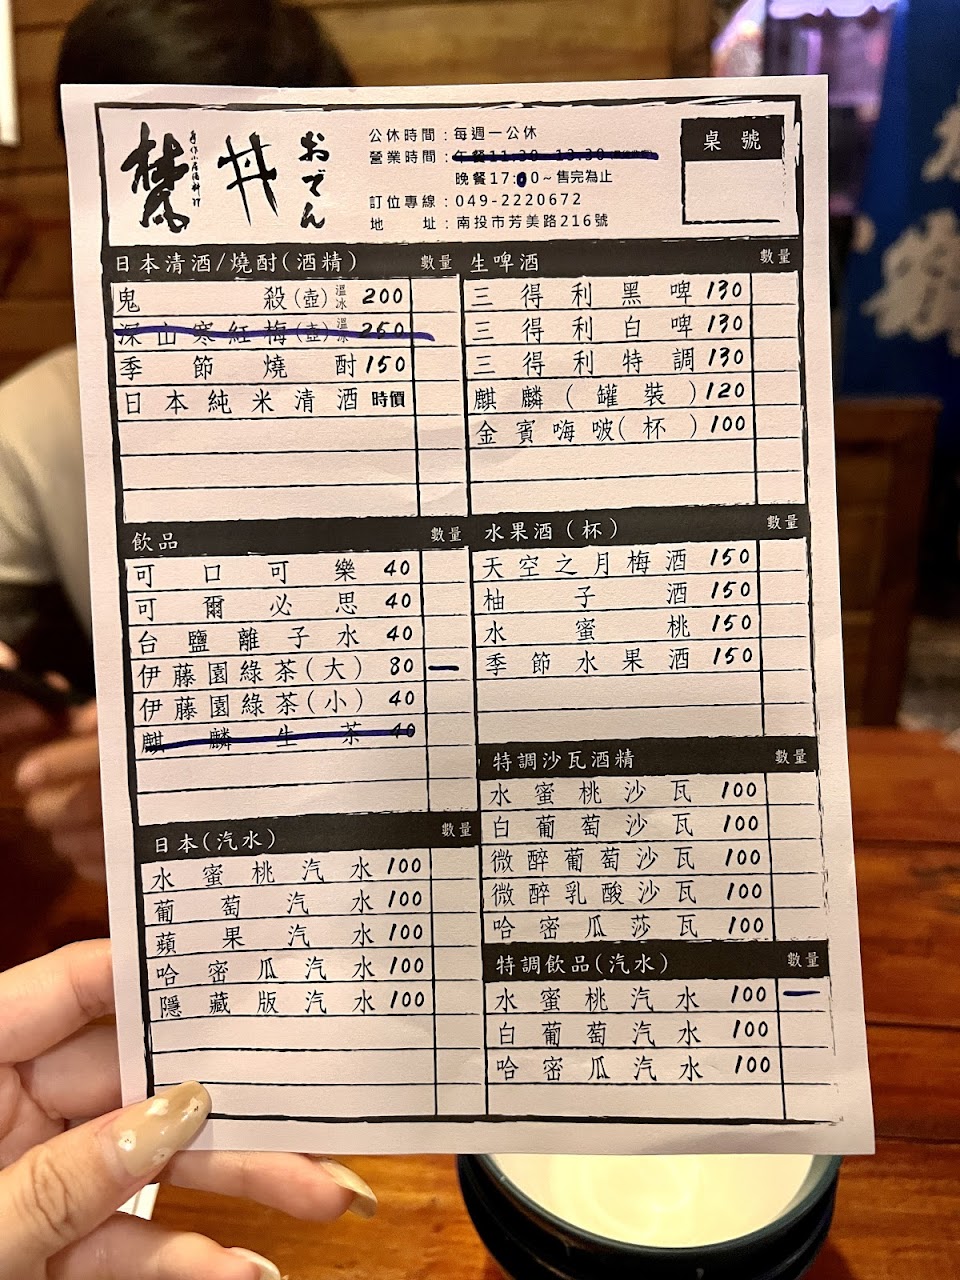 梵
手作小居酒料理
丼
おでん
公休時間：每週一公休
營業時間：午餐11:30-13:30
晚餐17:00～售完為止
訂位專線：049-2220672
地　址：南投市芳美路216號
桌號
日本清酒/燒酎(酒精) 數量
鬼殺(壺) 溫冰 200
深山寒紅梅(壺) 溫冰 250
季節燒酎 150
日本純米清酒 時價
生啤酒 數量
三得利黑啤 130
三得利白啤 130
三得利特調 130
麒麟(罐裝) 120
金賓嗨啵(杯) 100
飲品 數量
可口可樂 40
可爾必思 40
台鹽離子水 40
伊藤園綠茶(大) 80 一
伊藤園綠茶(小) 40
麒麟生茶 40
水果酒(杯) 數量
天空之月梅酒 150
柚子酒 150
水蜜桃 150
季節水果酒 150
特調沙瓦酒精 數量
水蜜桃沙瓦 100
白葡萄沙瓦 100
微醉葡萄沙瓦 100
微醉乳酸沙瓦 100
哈密瓜莎瓦 100
日本(汽水) 數量
水蜜桃汽水 100
葡萄汽水 100
蘋果汽水 100
哈密瓜汽水 100
隱藏版汽水 100
特調飲品(汽水) 數量
水蜜桃汽水 100 一
白葡萄汽水 100
哈密瓜汽水 100